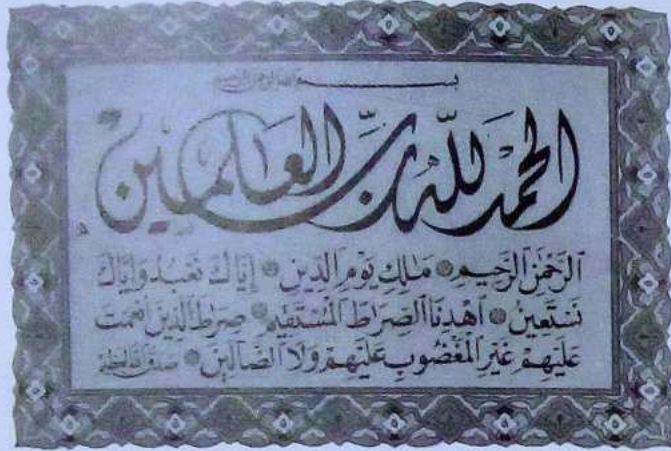 بسم الله الرحمن الرحيم
الحمد لله رب العالمين
الرَّحْمٰنِ الرَّحِيمِ ۞ مَلِكِ يَوْمِ الدِّينِ ۞ إِيَّاكَ نَعْبُدُ وَإِيَّاكَ
نَسْتَعِينُ ۞ اهْدِنَا الصِّرَاطَ الْمُسْتَقِيمَ ۞ صِرَاطَ الَّذِينَ أَنْعَمْتَ
عَلَيْهِمْ غَيْرِ الْمَغْضُوبِ عَلَيْهِمْ وَلَا الضَّالِّينَ ۞ صدق الله العظيم